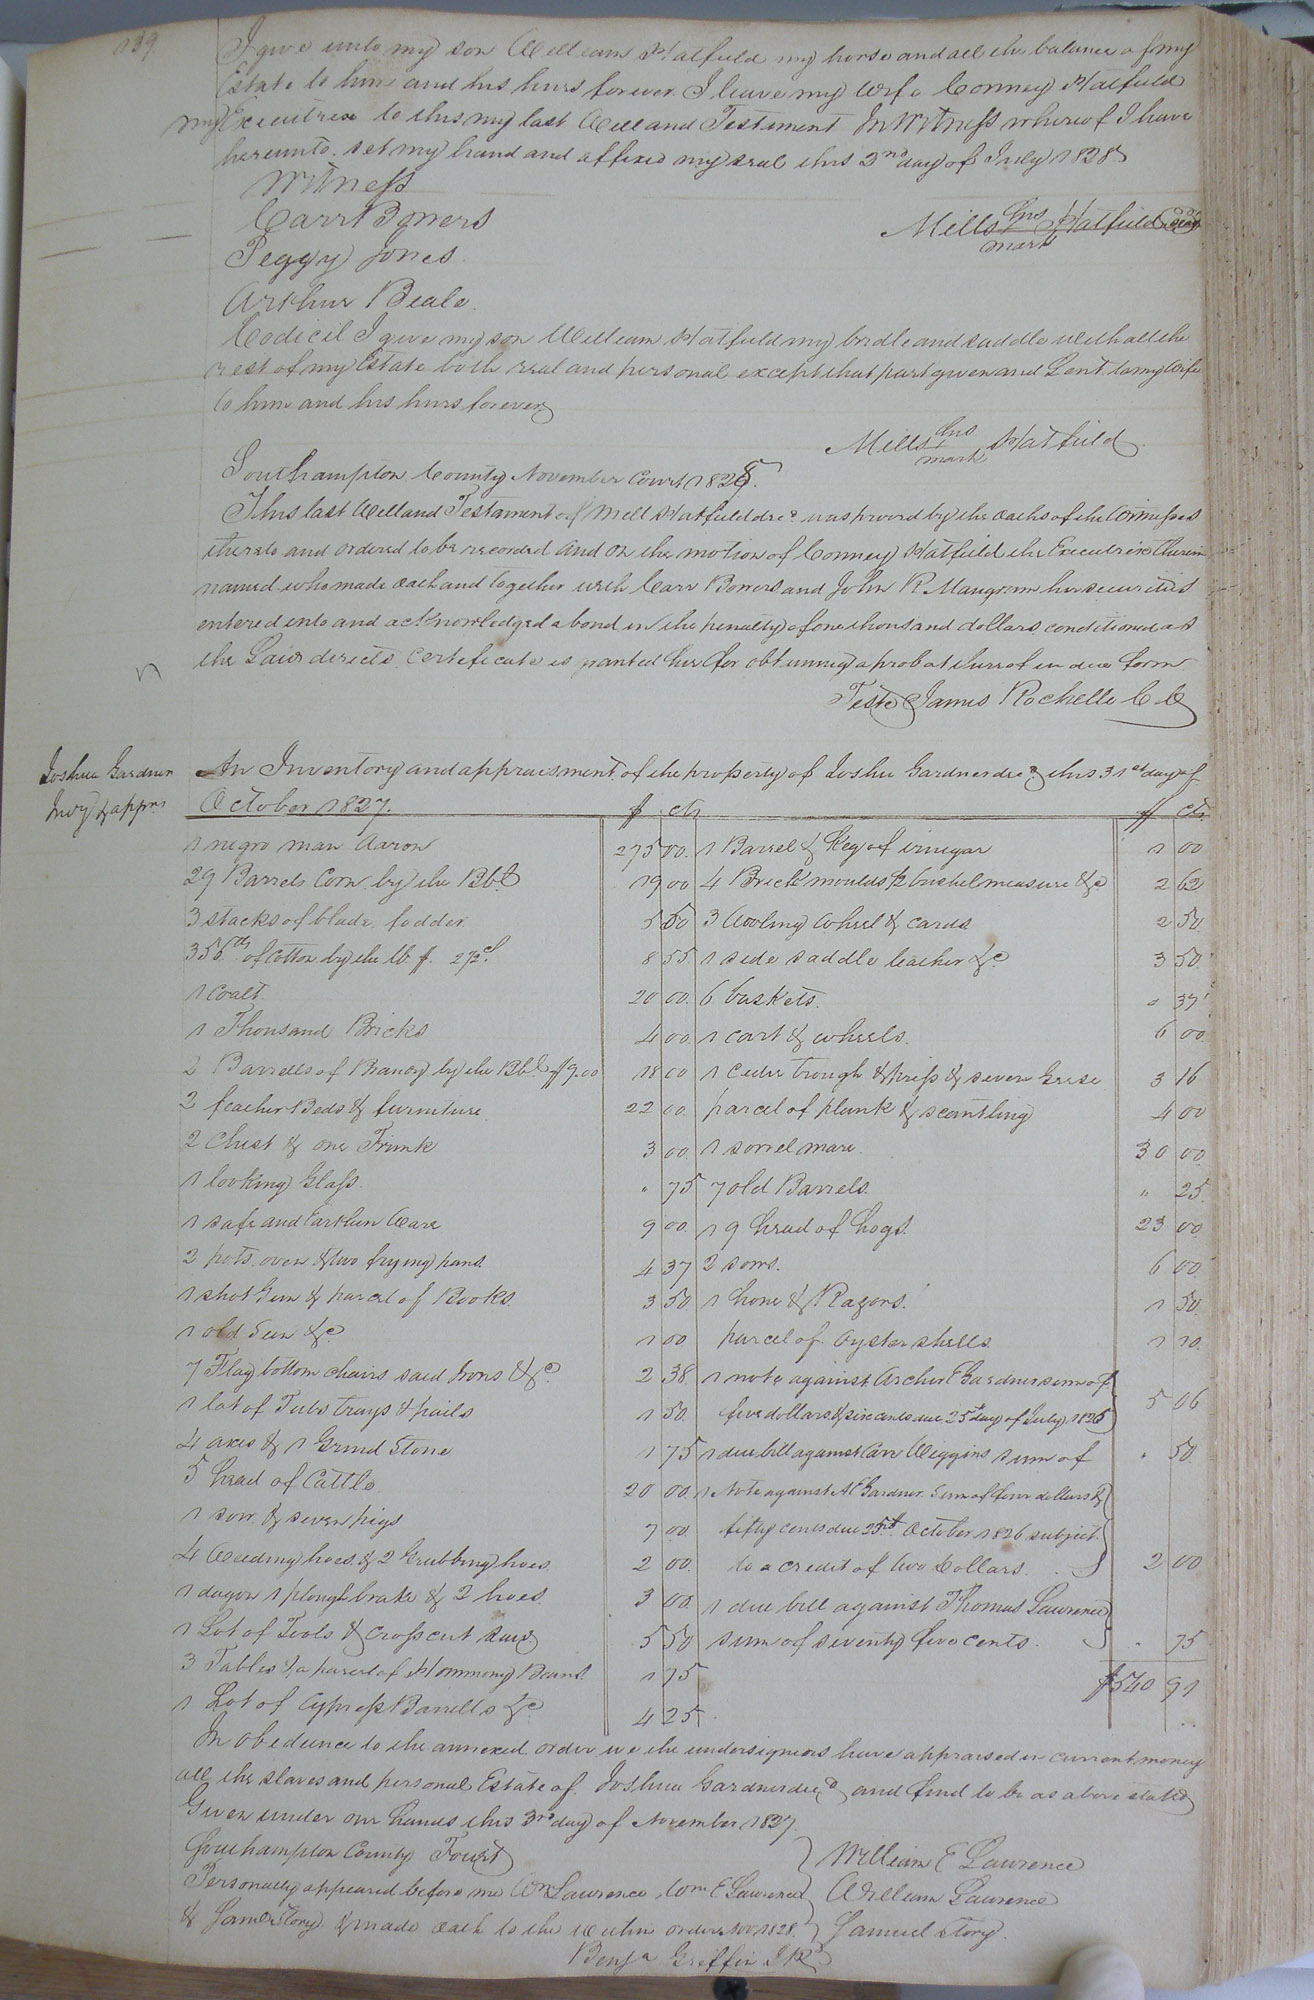 139
I give unto my son William Hatfield my horse and all the balance of my
Estate to him and his hiers forever. I leave my wife Conney Hatfield
my Executrix to this my last Will and Testament In Witness whereof I have
hereunto set my hand and affixed my seal this 2nd day of July 1828
Witness
Carr Bowers
Peggy Jones
Arthur Beale
Mills his mark Hatfield seal
Codicil I give my son William Hatfield my bridle and saddle with all the
rest of my Estate both real and personal except that part given and Lent to my Wife
to him and his hiers forever
Mills his mark Hatfield
Southampton County November Court 1828.
This last Will and Testament of Mill Hatfield decd was proved by the oaths of the Witnesses
thereto and ordered to be recorded And on the motion of Conney Hatfield the Executrix therein
named who made oath and together with Carr Bowers and John R Mangrum her securities
entered into and acknowledged a bond in the penalty of one thousand dollars conditioned as
the Law directs certificate is granted her for obtaining a probat thereof in due form
Teste James Rochelle C C
Joshua Gardner
Invy & apprt
An Inventory and appraisment of the property of Joshu Gardner decd this 31st day of
October 1827. $ cts $ cts
1 negro man Aaron 275 00. 1 Barrel & Keg of vinegar 1 00
29 Barrels Corn by the Bbl 19 00 4 Brick moulds 1/2 bushel measure &c 2 62
3 stacks of blade fodder 5 50 3 Wooling Wheel & cards 2 50
356 lbs of Cotton by the lb $ 2 72cs 8 55 1 side saddle leather &c 3 50
1 Coalt 20 00. 6 baskets. " 37
1 Thousand Bricks 4 00 1 cart & wheels. 6 00
2 Barrells of Brandy by the Bbl $9.00 18 00 1 cider trough & press & seven Geese 3 16
2 feather Beds & furniture 22 00. parcel of plank & scantling 4 00
2 Chest & one Trunk 3 00 1 sorrel mare 30 00
1 looking Glass " 75 7 old Barrels. " 25
1 safe and Earthen Ware 9 00 19 head of hogs. 23 00
2 pots oven & two frying pans 4 37 2 sows. 6 00
1 shot Gun & parcel of Books 3 50. 1 hone & Razors. 1 50
1 old Gun &c 1 00 parcel of Oyster shells 1 10.
7 Flag bottom chairs said Irons &c 2 38. 1 note against Archer E Gardner sum of
1 lot of Tubs trays & pails 1 50. five dollars & six cents due 25th day of July 1826 5 06
4 axes & 1 Grind Stone 1 75 1 due bill against Carr Wiggins sum of " 50.
5 head of Cattle 20 00. 1 Note against A E Gardner Sum of four dollars &
1 sow & seven pigs 7 00. fifty cents due 25th October 1826 subject
4 Weeding hoes & 2 Grubbing hoes 2 00. to a credit of two Dollars. 2 00
1 dagon 1 plough brake & 2 hoes 3 00. 1 due bill against Thomas Lawrence
1 Lot of Tools & cross cut saw 5 50 sum of seventy five cents. " 75
3 Tables & a parcel of Hommony Beans 1 75
$540 91
1 Lot of Cypress Barrells &c 4 25
In obedience to the annexed order we the undersigners have appraised in current money
all the slaves and personal Estate of Joshua Gardner decd and find to be as above stated
Given under our hands this 3rd day of November 1827.
Southampton County Towit
Personally appeared before me Wm Lawrence, Wm E Lawrence
& Saml Story & made oath to the within order Nov 1828.
Benja Griffin J P
William E Lawrence
William Lawrence
Samuel Story.